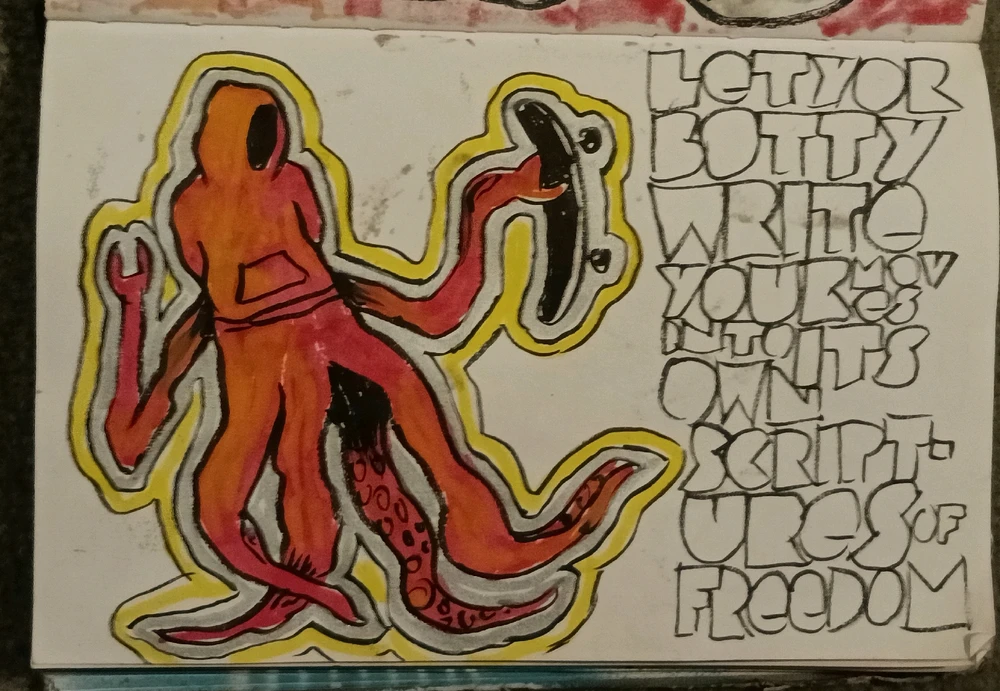 LeTYOR
BOTTY
WRITe
YOUR MOVes
INTO ITS
OWN
SCRIPT-
UReS OF
FReeDOM